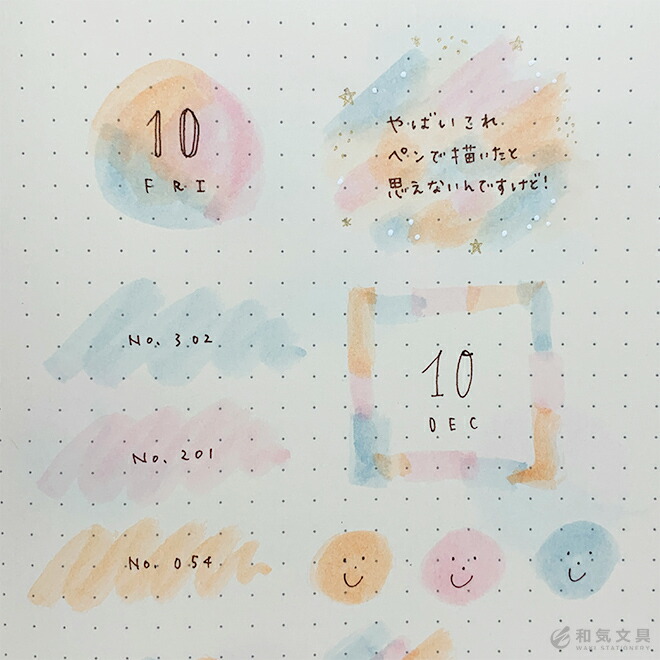 10
FRI
やばいこれ
ペンで描いたと
思えないんですけど!
No. 302
10
DEC
No. 201
No. 054
和気文具
WAKI STATIONERY